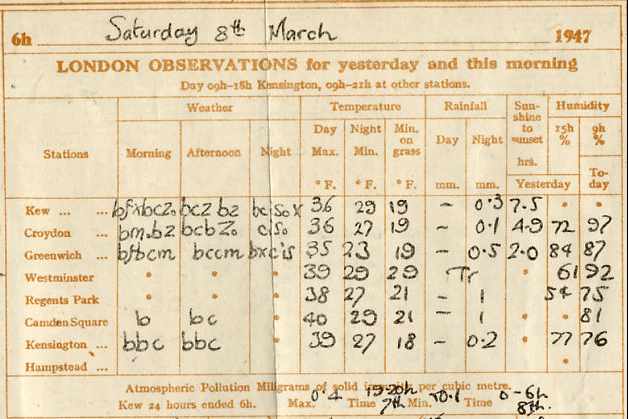 6h Saturday 8th March 1947
LONDON OBSERVATIONS for yesterday and this morning
Day 09h-18h Kensington, 09h-21h at other stations.
Stations Weather Temperature Rainfall Sunshine to sunset hrs. Humidity
Morning Afternoon Night Day Max. Night Min. Min. on grass Day Night 15h % 9h %
° F. ° F. ° F. mm. mm. Yesterday To-day
Kew ... ... bcz bz 36 29 19 - 0.3 7.5 • •
Croydon ... bm.bz bcbz. 36 27 19 - 0.1 4.9 72 97
Greenwich ... bfbcm bccm 35 23 19 - 0.5 2.0 84 87
Westminster • • • 39 29 29 Tr • 61 92
Regents Park • • • 38 27 21 - 1 54 75
Camden Square b bc 40 29 21 - 1 • 81
Kensington ... bbc bbc 39 27 18 - 0.2 • 77 76
Hampstead ... •
Atmospheric Pollution Milligrams of solid per cubic metre.
Kew 24 hours ended 6h. Max. 0.4 Time 19-20h 7th Min. 0.1 Time 0-6h 8th.